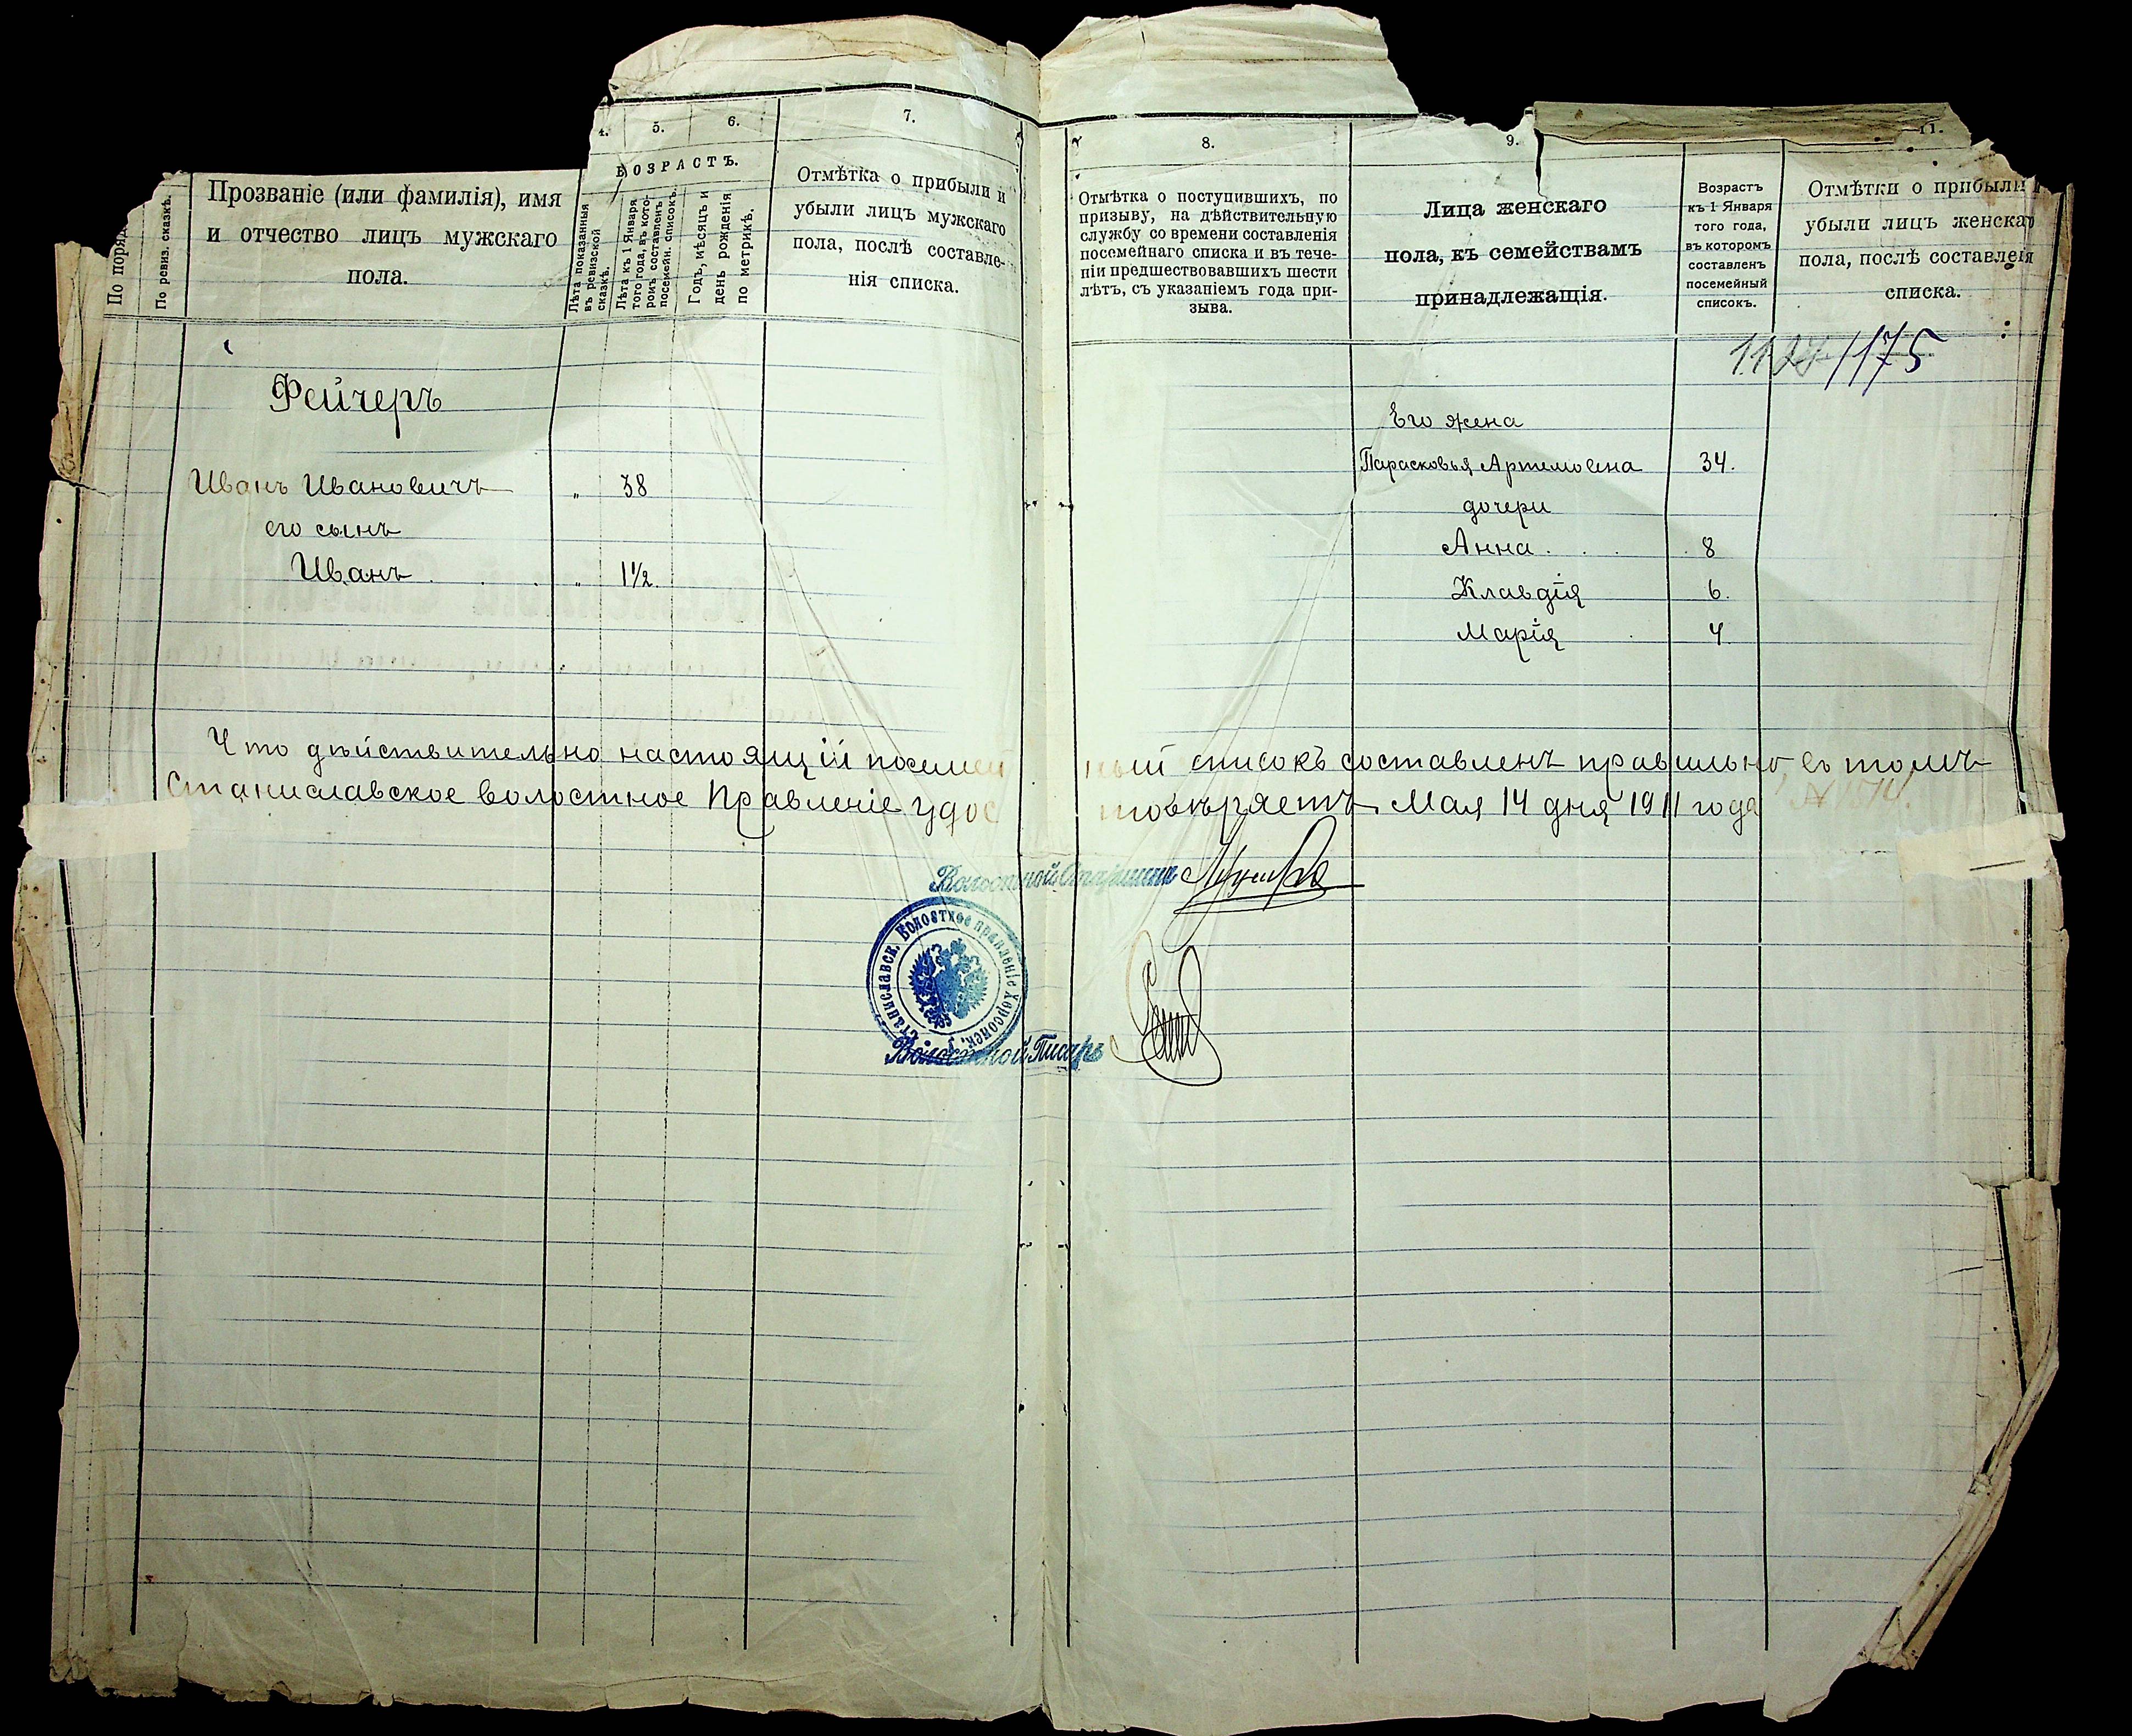 4.
5.
6.
7.
ВОЗРАСТЪ.
По поряд
По ревиз. сказкѣ.
Прозваніе (или фамилія), имя
и отчество лицъ мужскаго
пола.
Лѣта показанныя
въ ревизской
сказкѣ.
Лѣта къ 1 Января
того года, въ кото-
ромъ составленъ
посемейн. списокъ.
Годъ, мѣсяцъ и
день рожденія
по метрикѣ.
Отмѣтка о прибыли и
убыли лицъ мужскаго
пола, послѣ составле-
нія списка.
Фейчеръ
Иванъ Ивановичъ " 38
его сынъ
Иванъ . . . " 1½
8.
9.
11.
Отмѣтка о поступившихъ, по
призыву, на дѣйствительную
службу со времени составленія
посемейнаго списка и въ тече-
ніи предшествовавшихъ шести
лѣтъ, съ указаніемъ года при-
зыва.
Лица женскаго
пола, къ семействамъ
принадлежащія.
Возрастъ
къ 1 Января
того года,
въ которомъ
составленъ
посемейный
списокъ.
Отмѣтки о прибыли и
убыли лицъ женскаго
пола, послѣ составленія
списка.
1175
Его жена
Парасковья Артемовна 34.
дочери
Анна . . . . 8
Клавдія 6.
Марія . 4
Что дѣйствительно настоящій посемейный списокъ составленъ правильно, въ томъ
Станиславское волостное Правленіе удостовѣряетъ. Мая 14 дня 1911 года
Волостной Старшина
Станиславск. Волостное правленіе Херсонск. у.
Волостной Писарь